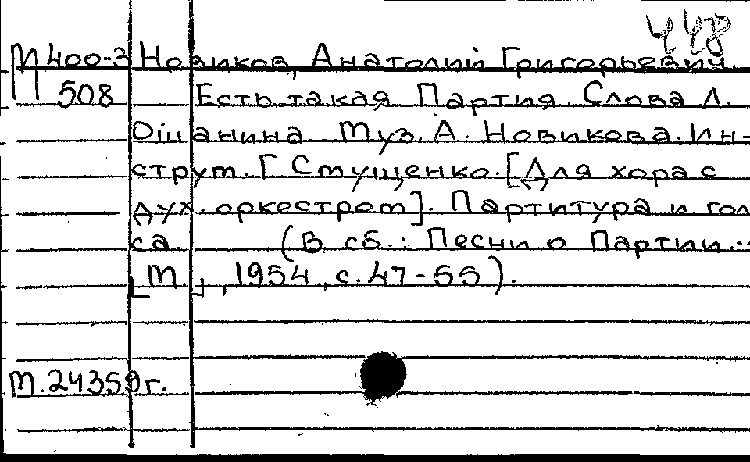 448
М400-3 Новиков, Анатолий Григорьевич.
508 Есть такая Партия. Слова Л.
Ошанина. Муз. А. Новикова. Ин-
струм. Г. Стущенко. [Для хора с
дух. оркестром]. Партитура и гол
са. (В сб.: Песни о Партии...
[М.], 1954, с. 47-55).
М. 24359г.